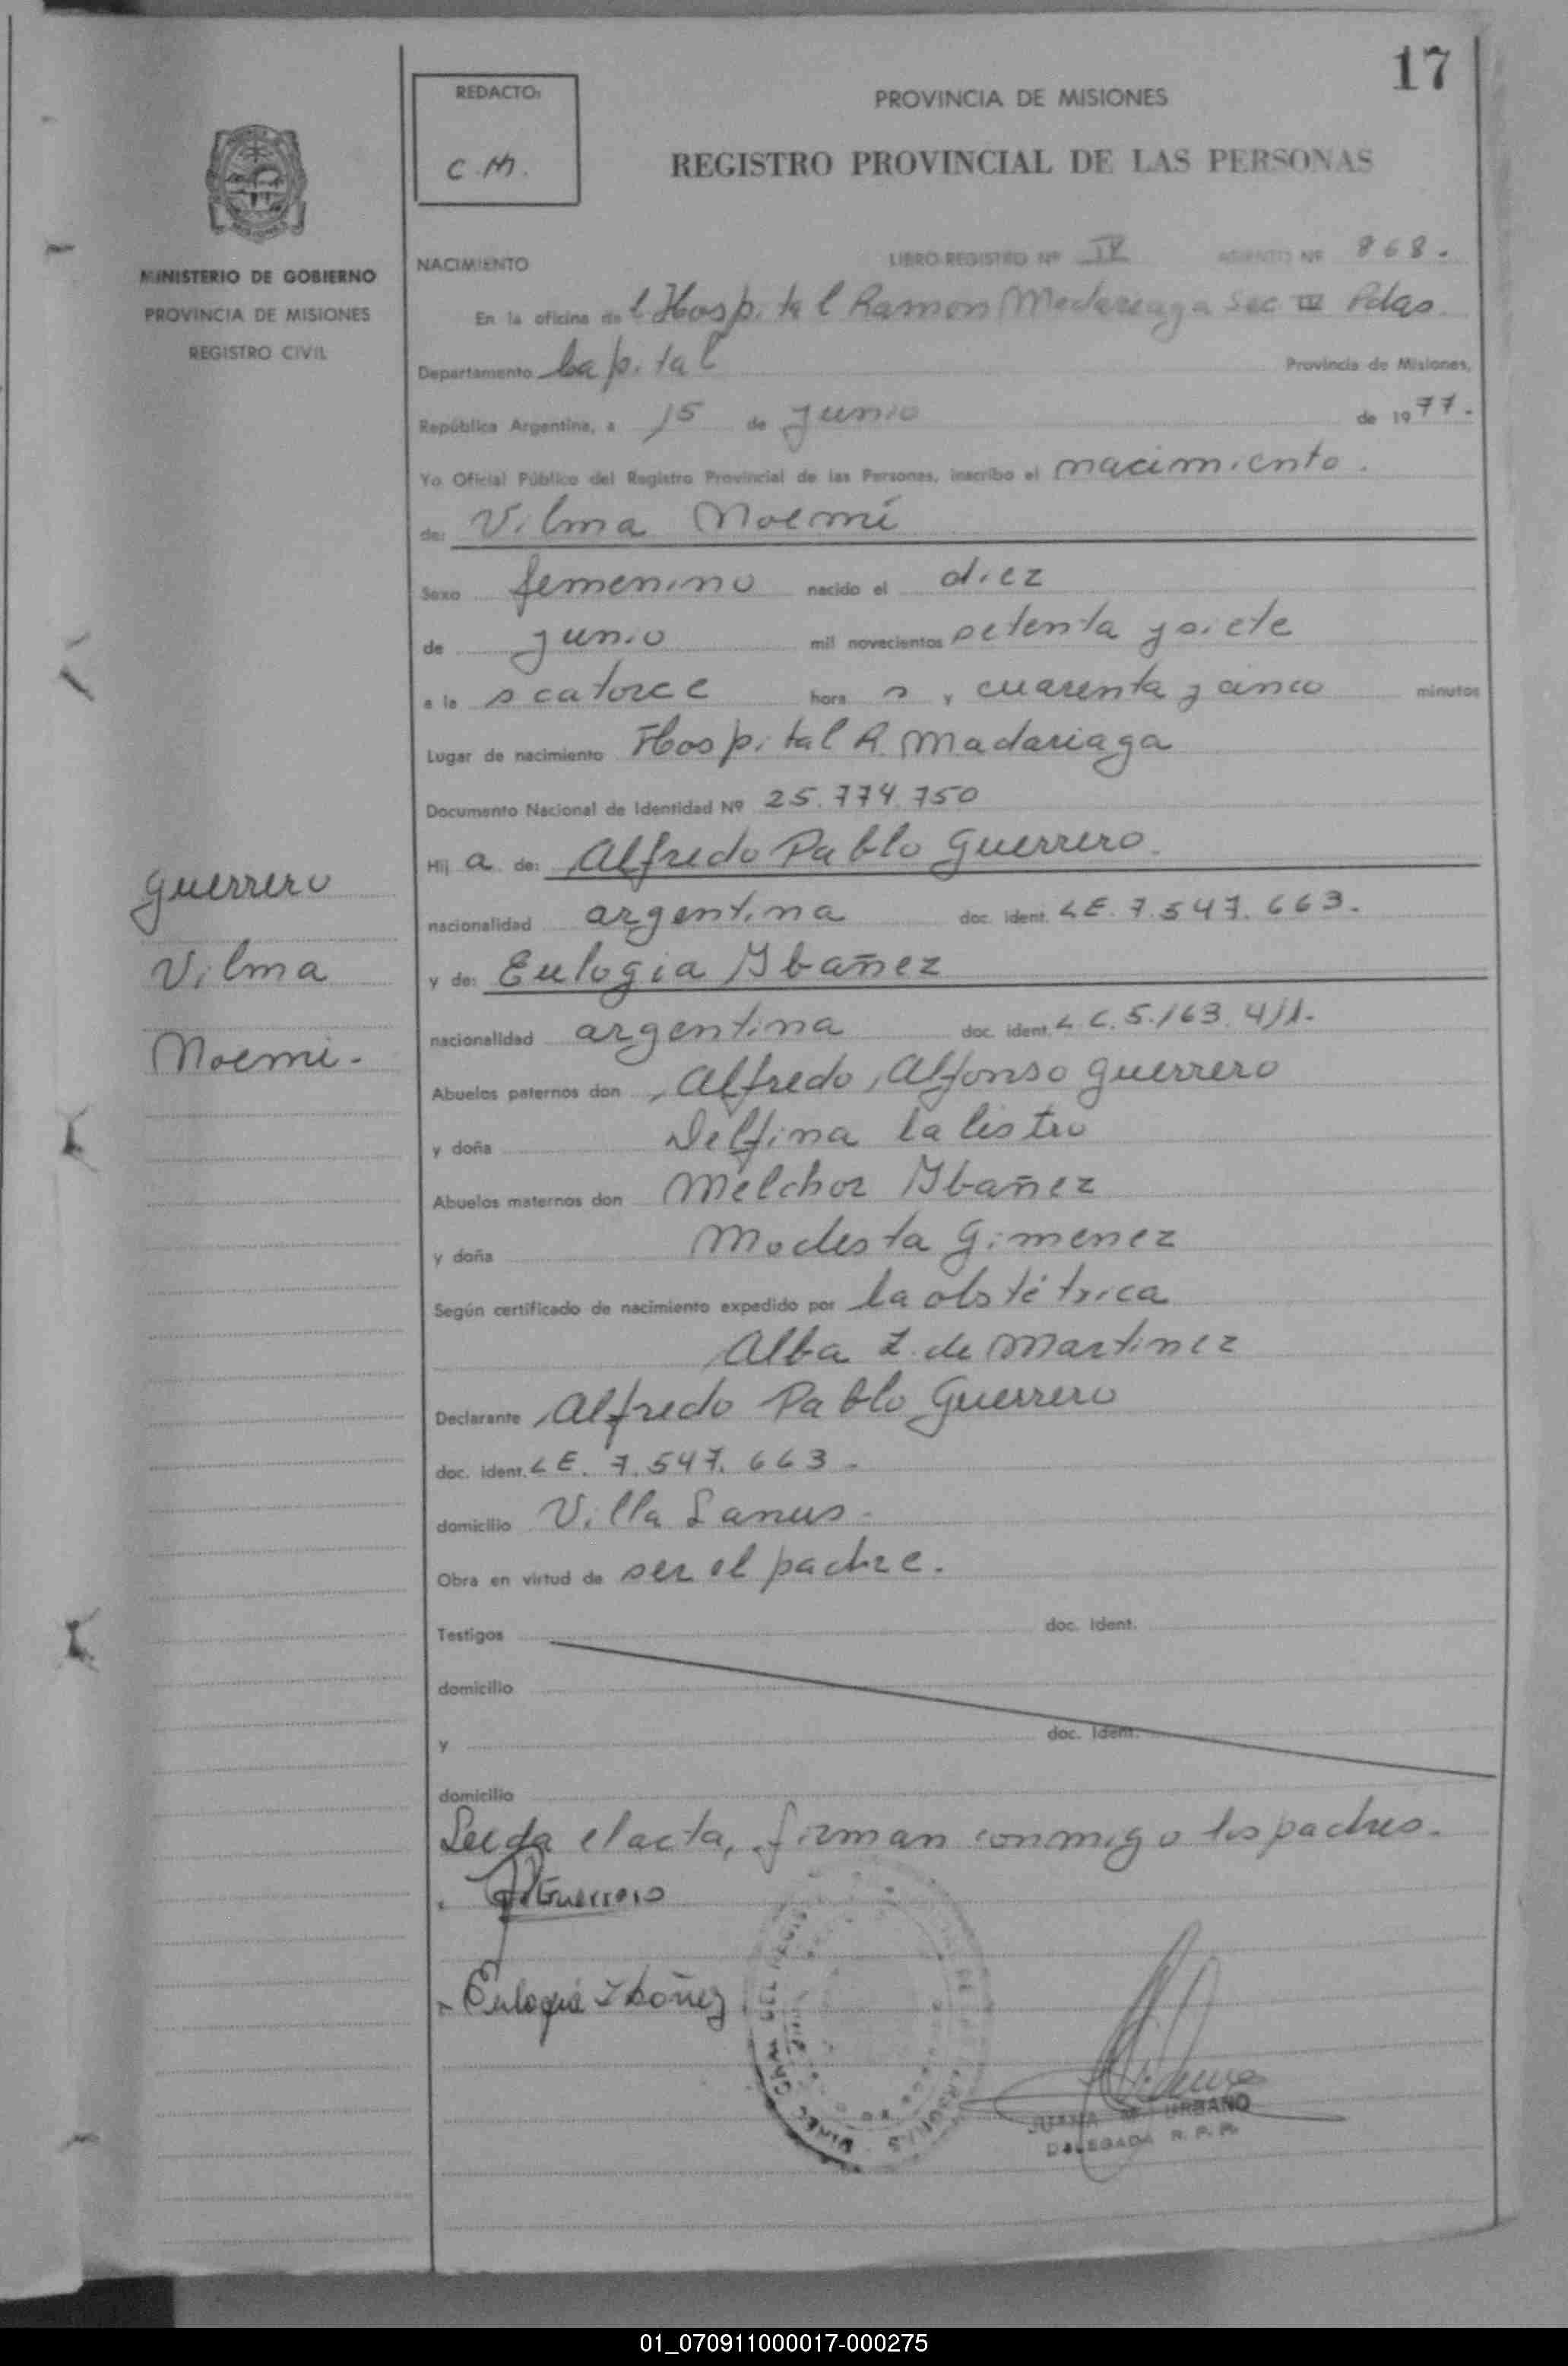 17
REDACTO:
C.M.
PROVINCIA DE MISIONES
REGISTRO PROVINCIAL DE LAS PERSONAS
MINISTERIO DE GOBIERNO
PROVINCIA DE MISIONES
REGISTRO CIVIL
NACIMIENTO LIBRO REGISTRO Nº IV ASIENTO Nº 868.
En la oficina de l Hospital Ramon Madariaga Sec IV Pdas.
Departamento Capital Provincia de Misiones,
República Argentina, a 15 de Junio de 1977.
Yo Oficial Público del Registro Provincial de las Personas, inscribo el nacimiento.
de: Vilma Noemí
Sexo femenino nacido el diez
de junio mil novecientos setenta y siete
a la s catorce hora s y cuarenta y cinco minutos
Lugar de nacimiento Hospital R. Madariaga
Documento Nacional de Identidad Nº 25.774.750
Hij a de: Alfredo Pablo Guerrero.
nacionalidad argentina doc. ident. LE. 7.547.663.
y de: Eulogia Ybañez
nacionalidad argentina doc. ident. LC. 5.163.411.
Abuelos paternos don Alfredo Alfonso Guerrero
y doña Delfina Calistro
Abuelos maternos don Melchor Ybañez
y doña Modesta Gimenez
Según certificado de nacimiento expedido por la obstétrica
Alba Z. de Martinez
Declarante Alfredo Pablo Guerrero
doc. ident. LE. 7.547.663.
domicilio Villa Lanus.
Obra en virtud de ser el padre.
Testigos doc. Ident.
domicilio
y doc. Ident.
domicilio
Leida el acta, firman conmigo los padres.
Guerrero
Eulogia Ibáñez
JUANA URBANO
DELEGADA R. P. P.
Guerrero
Vilma
Noemi.
01_070911000017-000275